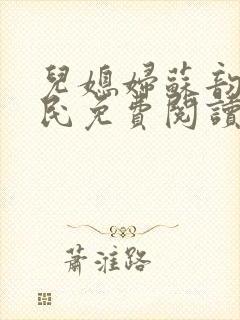 兒媳婦蘇韵
民免費閱讀
蕭淮路